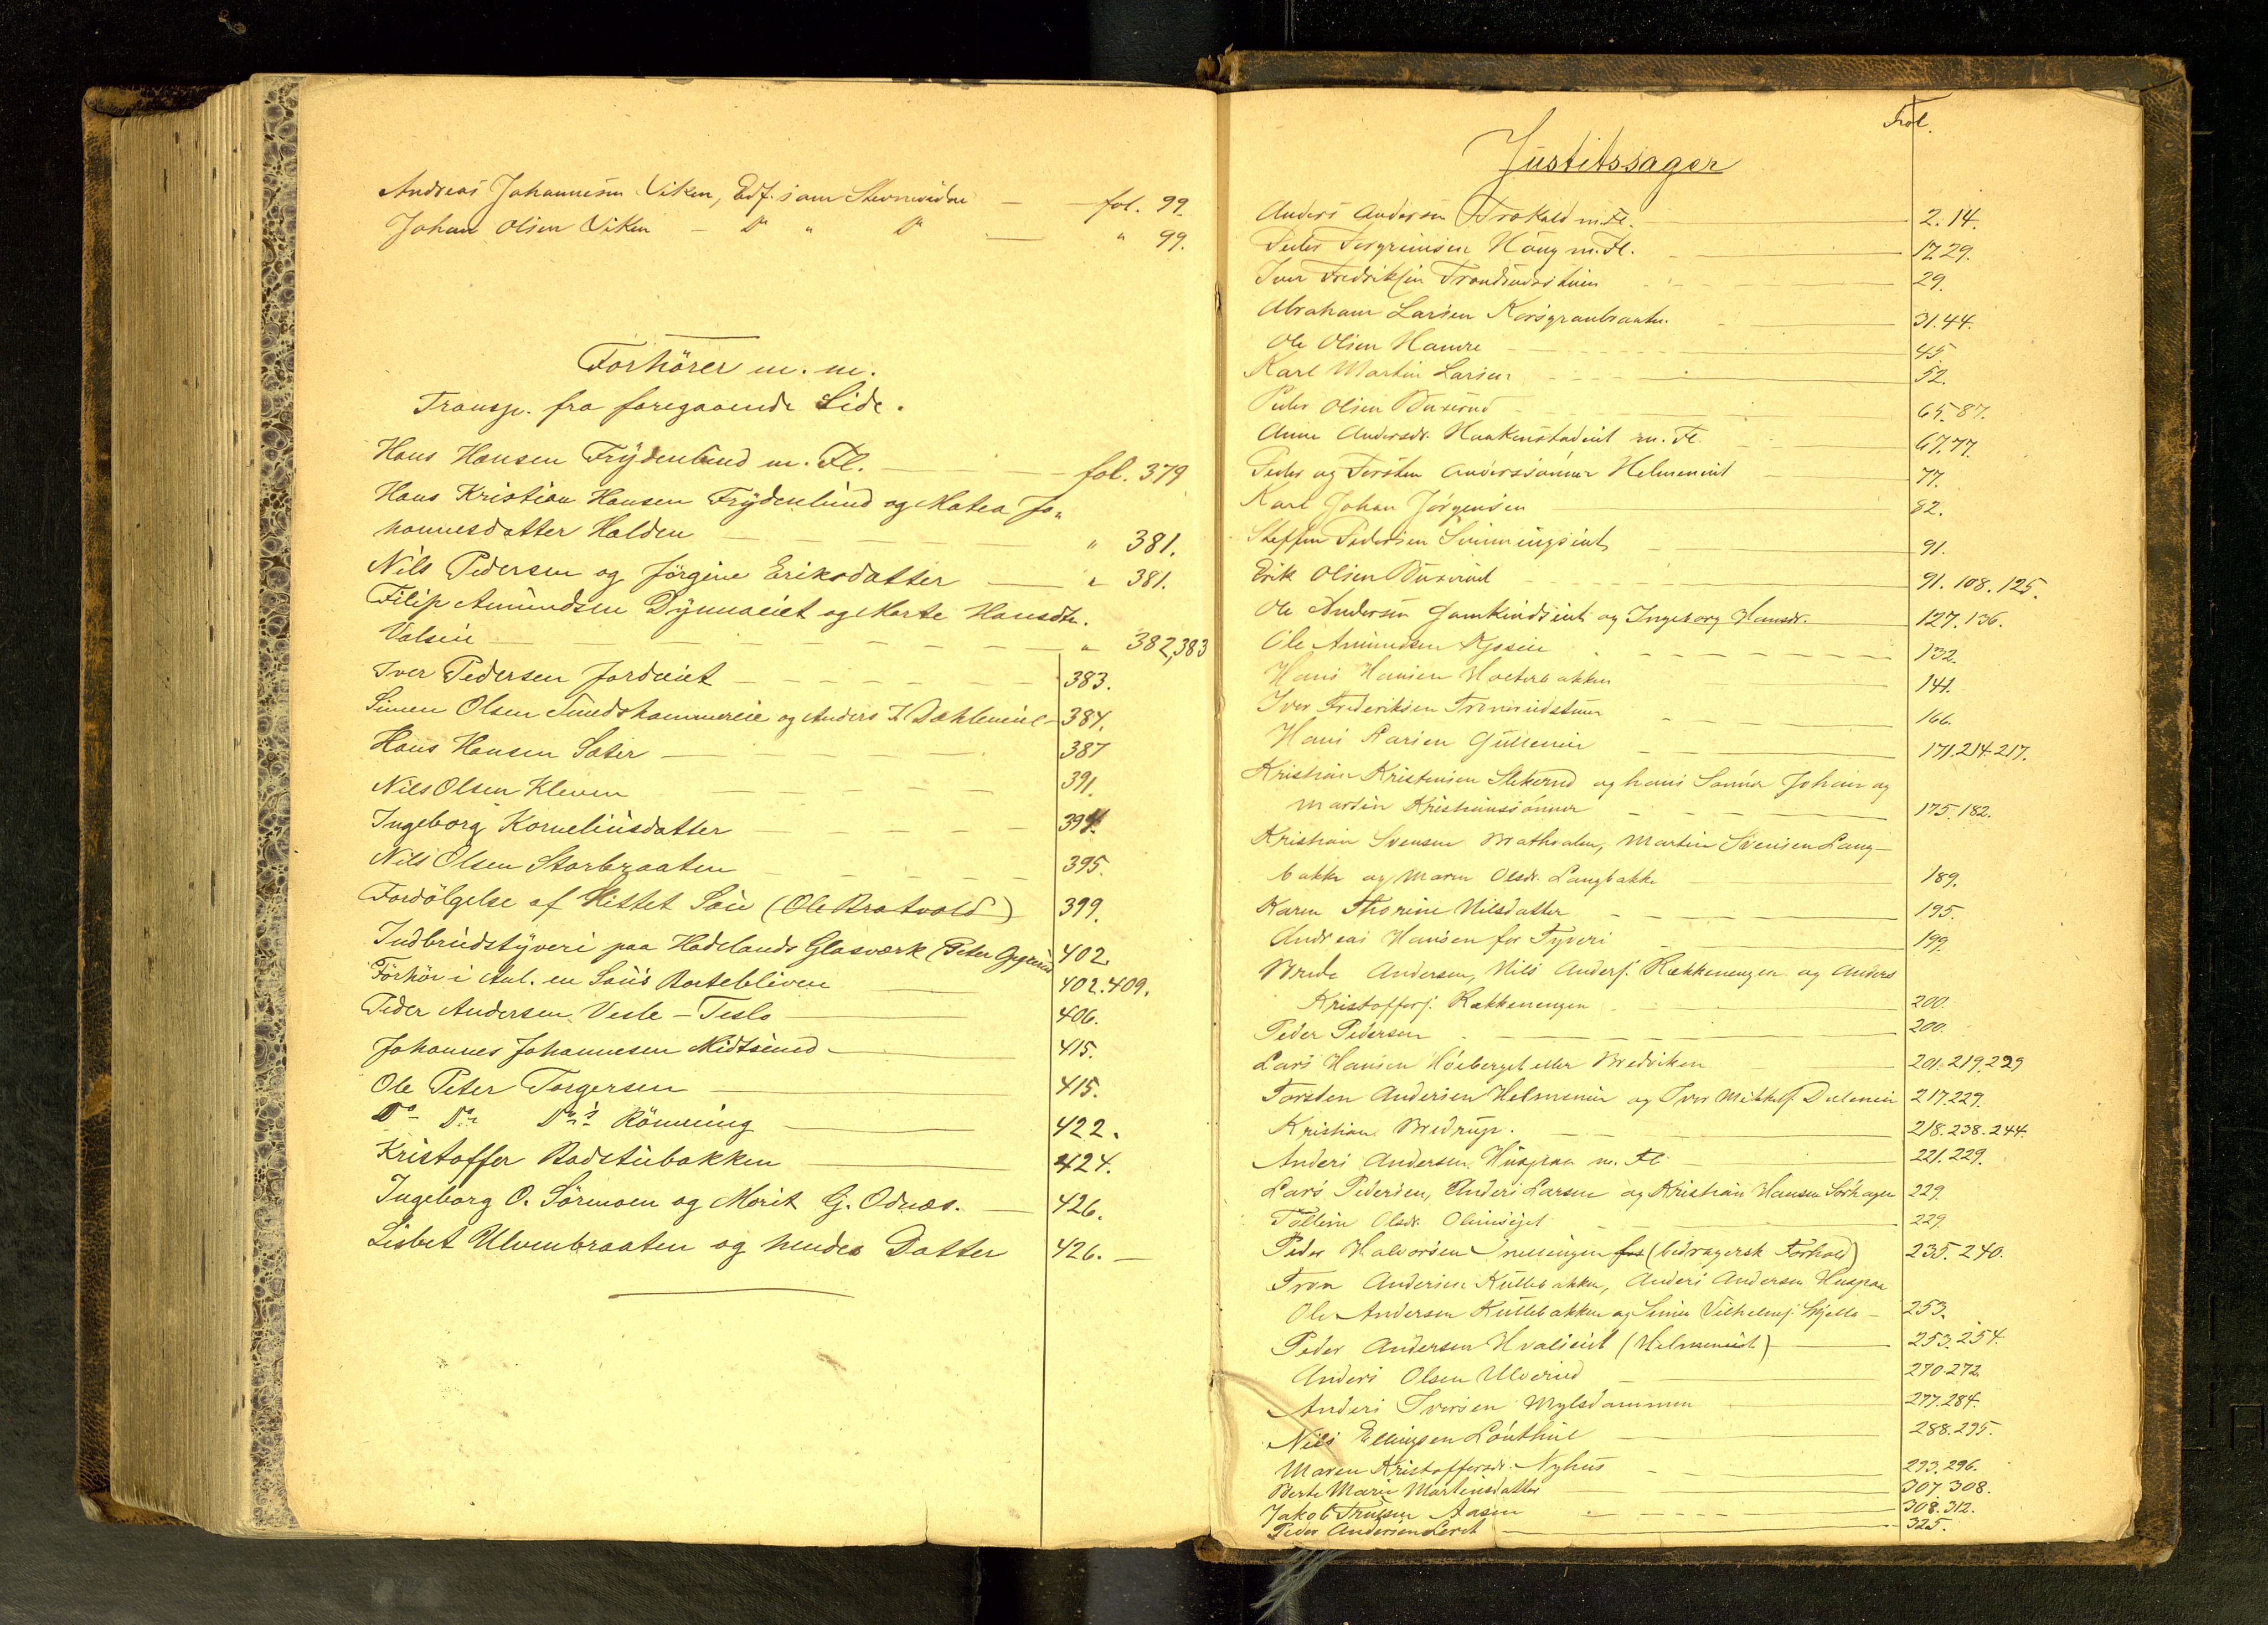 Andreas Johannesen Viken, Edf. som Stevnevidne — fol. 99.
Johan Olsen Viken — Do " Do — " 99.
Forhörer m. m.
Transp. fra foregaaende Side.
Hans Hansen Frydenlund m. Fl. — fol. 379
Hans Kristian Hansen Frydenlund og Matea Jo„
hannesdatter Halden — " 381.
Nils Pedersen og Jörgine Eriksdatter — " 381.
Filip Amundsen Dynnaeiet og Marte Hansdtr.
Valseie — " 382,383
Iver Pedersen Jordeiet — 383.
Simen Olsen Sundshammereie og Anders K. Dæhleneie — 384.
Hans Hansen Sæter — 387
Nils Olsen Kleven — 391.
Ingeborg Korneliusdatter — 394.
Nils Olsen Storbraaten — 395.
Fordölgelse af Hittet Sou (Ole Bratvold) 399.
Indbrudstyveri paa Hadelands Glasværk (Peter 402.
Forhör i Anl. en Sous Bortebliven — 402.409.
Peder Andersen Vesle-Teslo — 406.
Johannes Johannesen Midtsund — 415.
Ole Peter Torgersen — 415.
Do Do Do's Rönning — 422.
Kristoffer Badstubakken — 424.
Ingeborg O. Sörumoen og Marit G. Odnæs. — 426.
Lisbet Ulvenbraaten og hendes Datter 426. —
Fol.
Justitssager
Anders Andersen m. Fl. — 2.14.
Peder Torgrimsen Haug m. Fl. — 17.29.
Iver Fredriksen — 29.
Abraham Larsen Korsgranbraaten. — 31.44.
Ole Olsen Hamre — 45.
Karl Martin Larsen — 52.
Peder Olsen Buxerud — 65.87.
Anne Andersdr. Haakenstadeiet m. Fl. — 67.77.
Peder og Torsten Anderssönner Helmeneiet — 77.
Karl Johan Jörgensen 82.
Steffen Pedersen — 91.
Erik Olsen Buxerud — 91.108.125.
Ole Andersen Gamkindseiet og Ingeborg Hansdr. — 127.136.
Ole Amundsen — 132.
Hans Hansen Holterbakken 141.
Iver Frederiksen — 166.
Hans Larsen Gulleneie — 171.214.217.
Kristian Kristensen Slekerud og hans Sönner Johan og
Martin Kristianssönner — 175.182.
Kristian Svensen Brathvalen, Martin Svensen Lang-
bakke og Maren Olsdr. Langbakke — 189.
Karen Thorine Nilsdatter — 195.
Andreas Hansen for Tyveri — 199.
Brede Andersen, Nils Andersj. Rækkenengen og Anders
Kristoffersj. Rækkenengen — 200.
Peder Pedersen — 200.
Lars Hansen Höiberget eller Bredviken 201.219.229
Torsten Andersen Helmeneie og Iver Mikkelsj. Duleneie 217.229.
Kristian Bredrup. — 218.238.244.
Anders Andersen Huspaa m. Fl — 221.229.
Lars Pedersen, Anders Larsen og Kristian Hansen Sörhagen 229.
Olsdr. — 229.
Peder Halvorsen Snellingen (bedragersk Forhold) 235.240.
Tron Andersen Kullebakken, Anders Andersen Huspaa
Ole Andersen Kullebakken og Simen Vilhelmsj. — 253.
Peder Andersen Hvalseiet (Helmeneiet) — 253.254.
Anders Olsen Ulverud — 270.272.
Anders Iversen Mylsdammen 277.284.
Nils Ellingsen — 288.295.
Maren Kristoffersdr. Nyhus — 293.296.
Berte Marie Martinsdatter — 307.308.
Jakob Trulsen Aasen — 308.312.
Peder Andersen — 325.